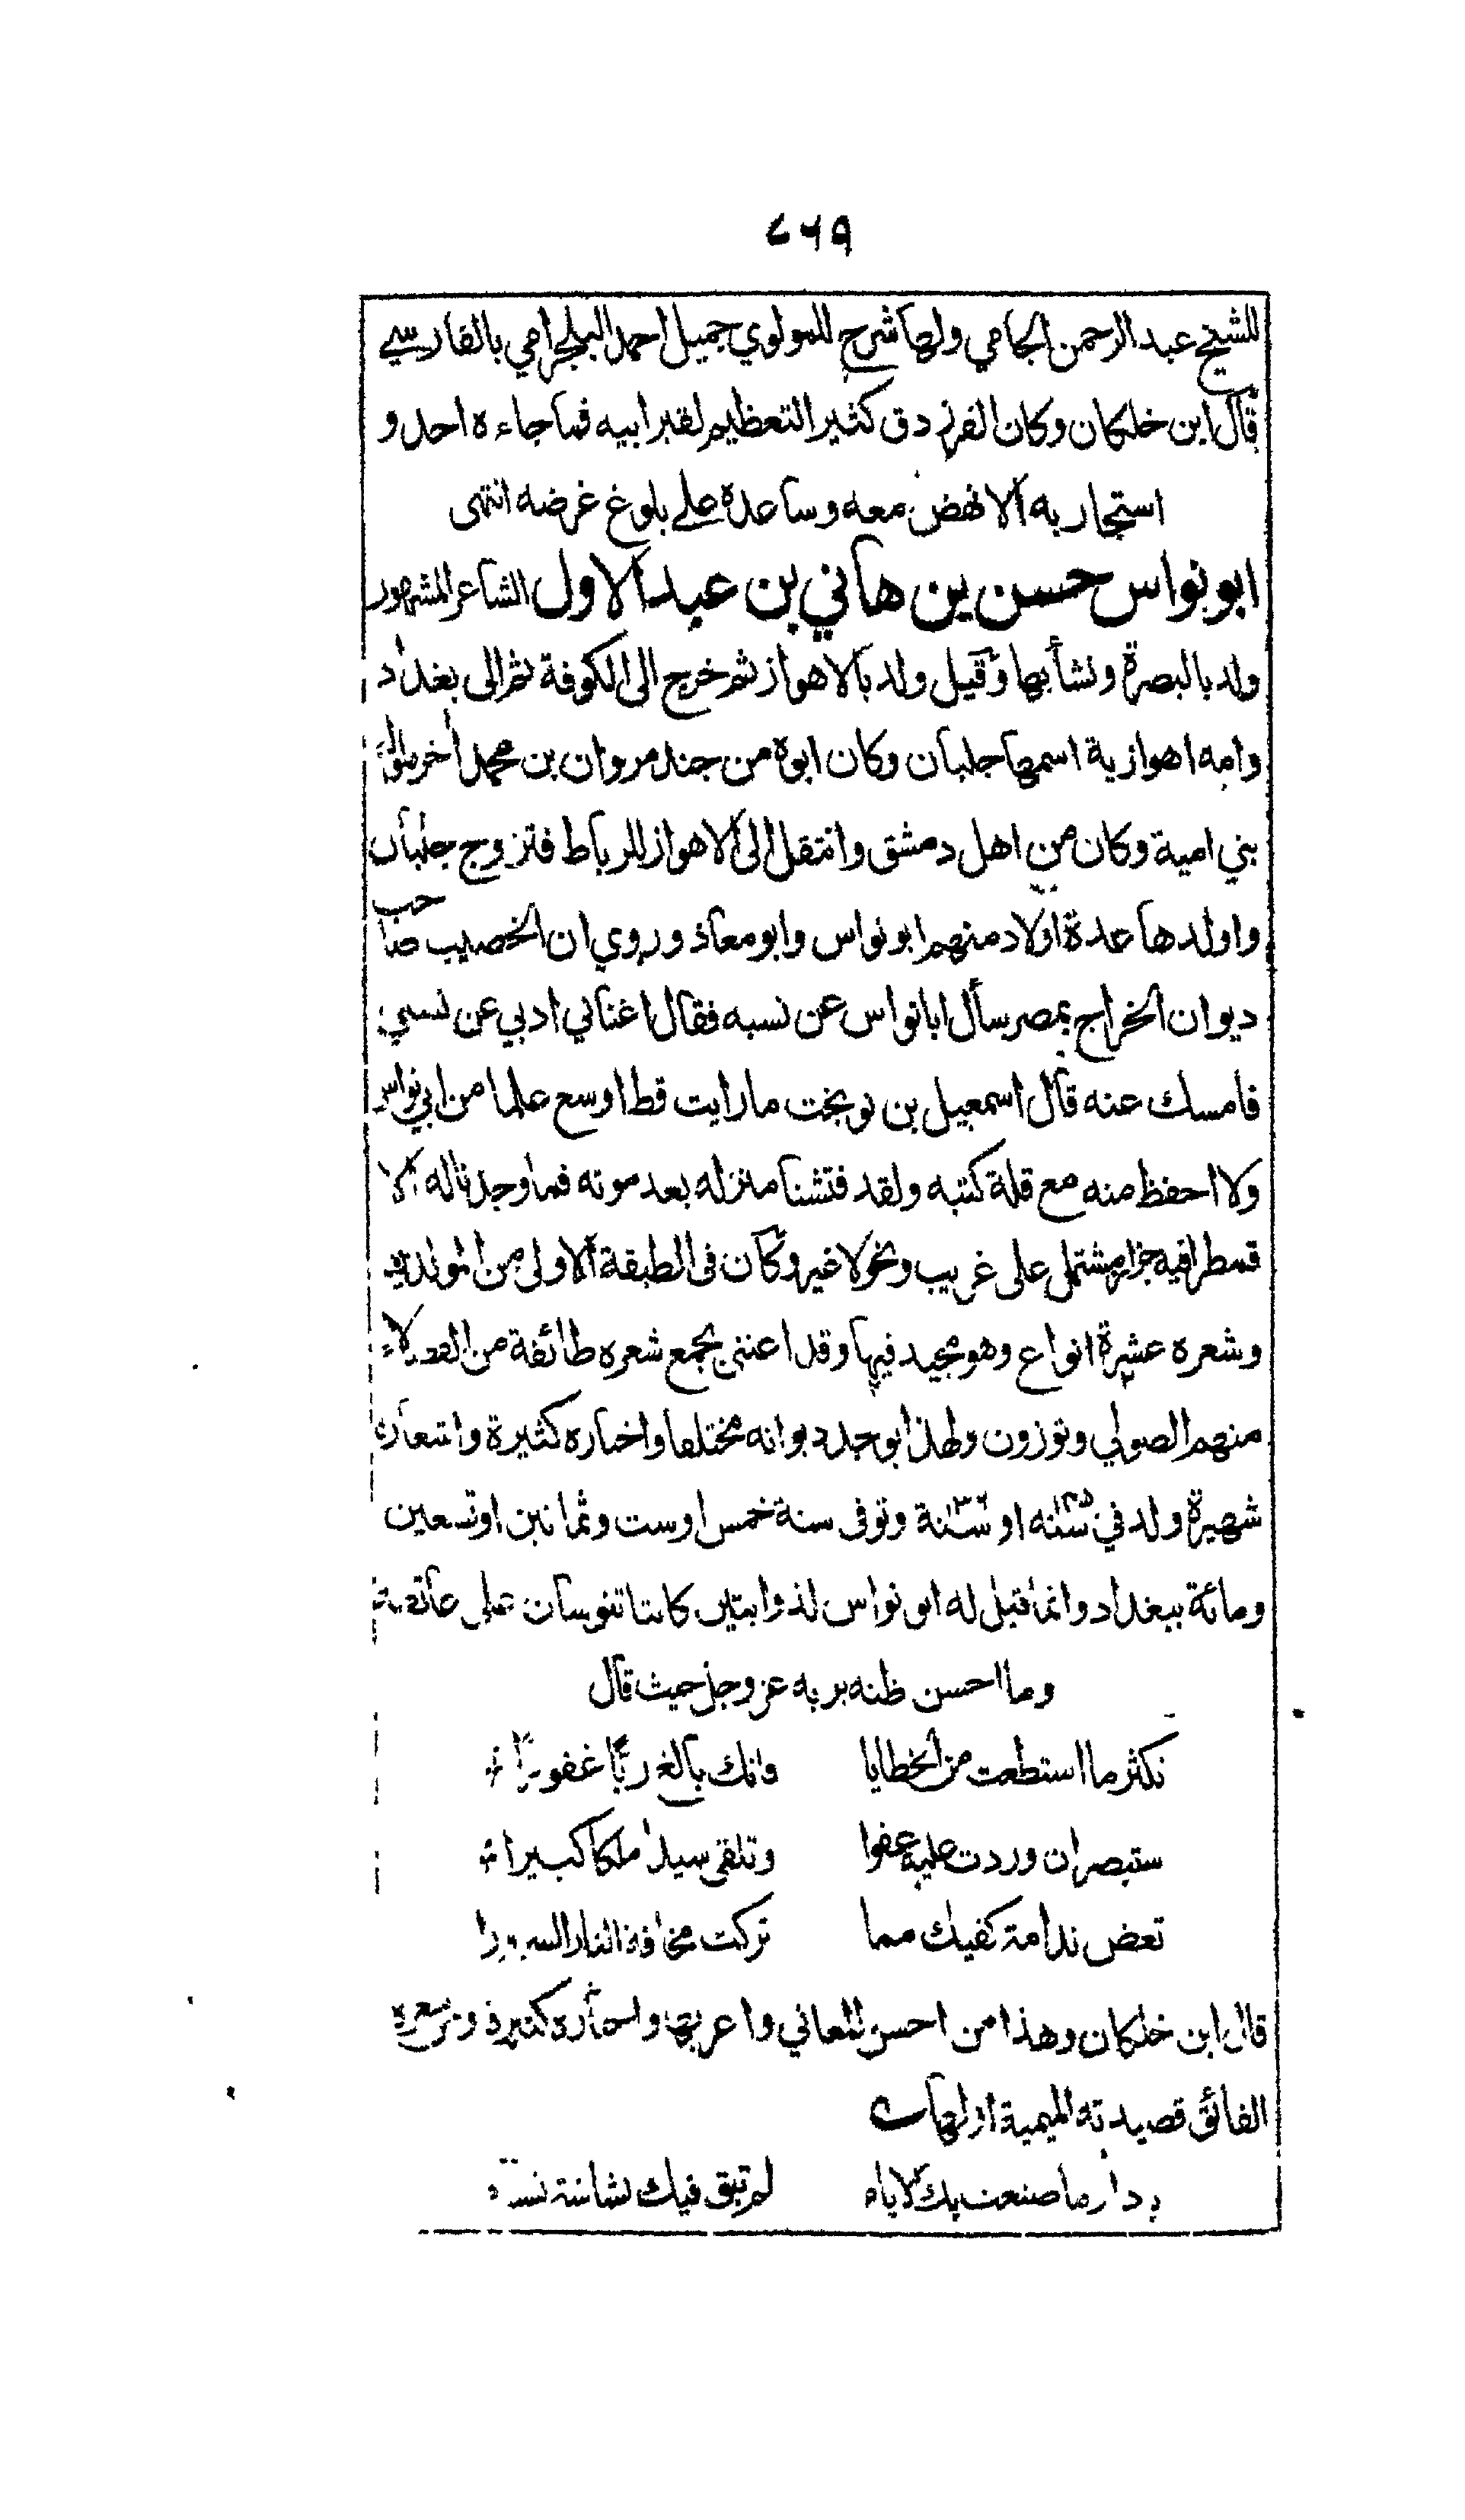 ٧٦٩
للشيخ عبد الرحمن الجامي ولها شرح للمولوي جميل احمد البلجرامي بالفارسي
قال ابن خلكان وكان الفرزدق كثير التعظيم لقبر ابيه فما جاءه احد و
استجار به الا نهض معه وساعده على بلوغ غرضه انتهى
ابو نواس حسن بن هاني بن عبد الاول الشاعر المشهور
ولد بالبصرة ونشأ بها وقيل ولد بالاهواز ثم خرج الى الكوفة ثم الى بغداد
وامه اهوازية اسمها جلبان وكان ابوه من جند مروان بن محمد اخر ملوك
بني امية وكان من اهل دمشق وانتقل الى الاهواز للرباط فتزوج جلبان
واولدها عدة اولاد منهم ابو نواس وابو معاذ وروي ان الخصيب صاحب
ديوان الخراج بمصر سأل ابا نواس عن نسبه فقال اغناني ادبي عن نسبي
فامسك عنه قال اسمعيل بن نوبخت ما رايت قط اوسع علما من ابي نواس
ولا احفظ منه مع قلة كتبه ولقد فتشنا منزله بعد موته فما وجدنا له الا
قمطرا فيه جزاز مشتمل على غريب ونحو لا غير وكان فى الطبقة الاولى من المولدين
وشعره عشرة انواع وهو مجيد فيها وقد اعتنى بجمع شعره طائفة من الفضلاء
منهم الصولي وتوزون ولهذا يوجد ديوانه مختلفا واخباره كثيرة واشعاره
شهيرة ولد في سنة ١٤٥ او سنة ١٣٦ وتوفى سنة خمس او ست وثمانين او تسعين
ومائة ببغداد وانما قيل له ابو نواس لذوابتين كانتا تنوسان على عاتقيه
وما احسن ظنه بربه عز وجل حيث قال
تكثر ما استطعت من الخطايا فانك بالغ ربًّا غفورًا
ستبصر ان وردت عليه عفوا وتلقى سيدا ملكا كبيرا
تعض ندامة كفيك مما تركت مخافة النار السرورا
قال ابن خلكان وهذا من احسن المعاني واغربها واخباره كثيرة ومن شعره
الفائق قصيدته الميمية اولها
يا دار ما صنعت بك الايام لم تبق فيك بشاشة